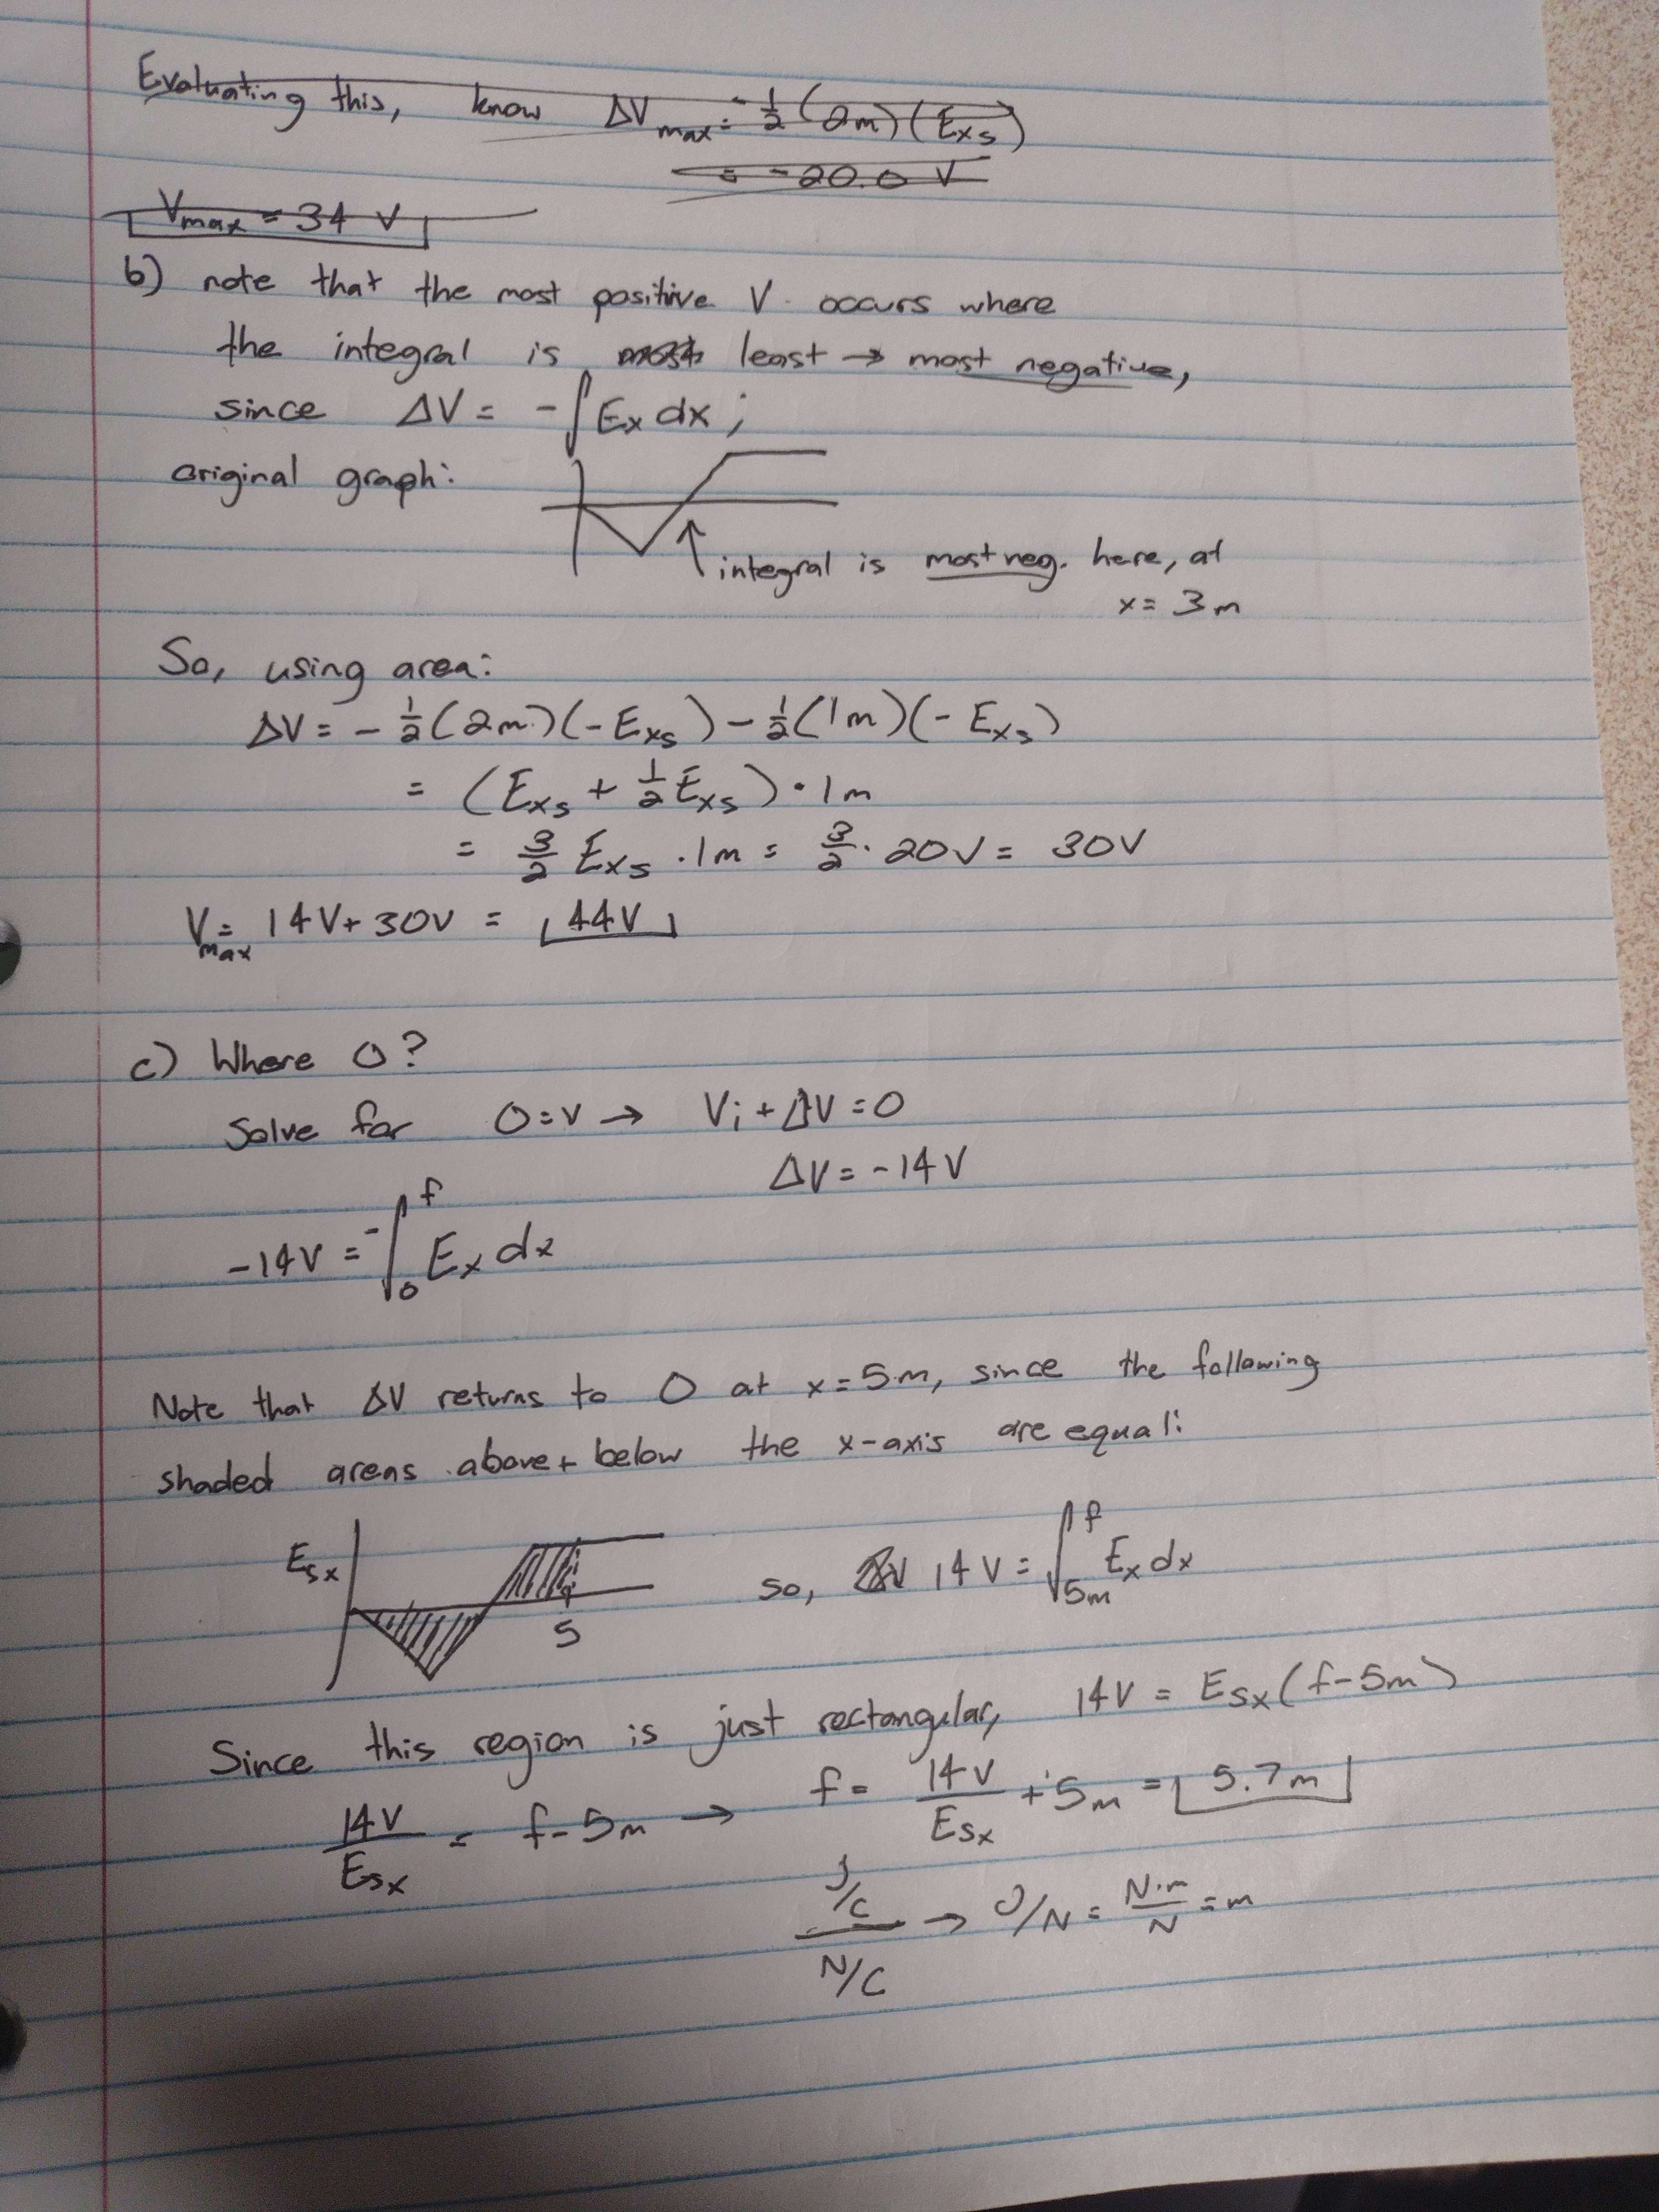 Evaluating this, know ΔV_max = -½(2m)(E_xs)
= -20.0 V
V_max = 34 V
b) note that the most positive V occurs where
the integral is least → most negative,
since ΔV = -∫E_x dx ;
original graph:
integral is most neg. here, at
x = 3m
So, using area:
ΔV = -½(2m)(-E_xs) - ½(1m)(-E_xs)
= (E_xs + ½E_xs)·1m
= 3/2 E_xs ·1m = 3/2 · 20V = 30V
V_max = 14V + 30V = 44V
c) Where 0?
Solve for 0=V → Vi + ΔV = 0
ΔV = -14V
-14V = -∫₀^f E_x dx
Note that ΔV returns to 0 at x=5m, since the following
shaded areas above + below the x-axis are equal:
E_sx
5
so, 14V = ∫_5m^f E_x dx
Since this region is just rectangular, 14V = E_sx(f-5m)
14V/E_sx = f-5m → f = 14V/E_sx + 5m = 5.7m
(J/C)/(N/C) → J/N = N·m/N = m